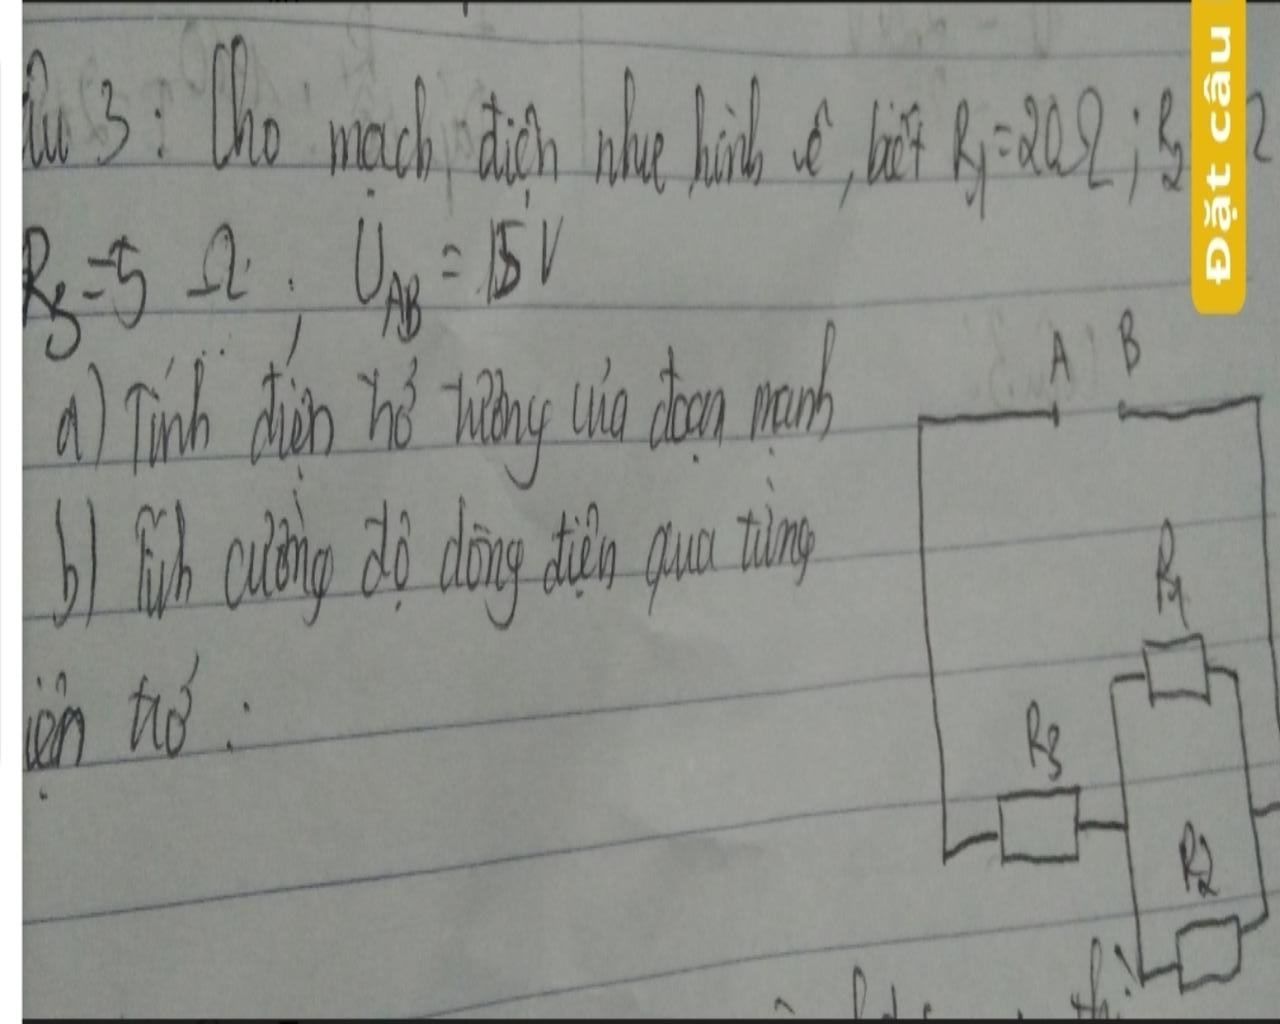 3: Cho mạch điện như hình vẽ, biết R1=20Ω; R2
R3=5 Ω. UAB = 15V
a) Tính điện trở tương của đoạn mạnh
b) Tính cường độ dòng điện qua từng
iện trở:
A B
R1
R3
R2
Đặt câu